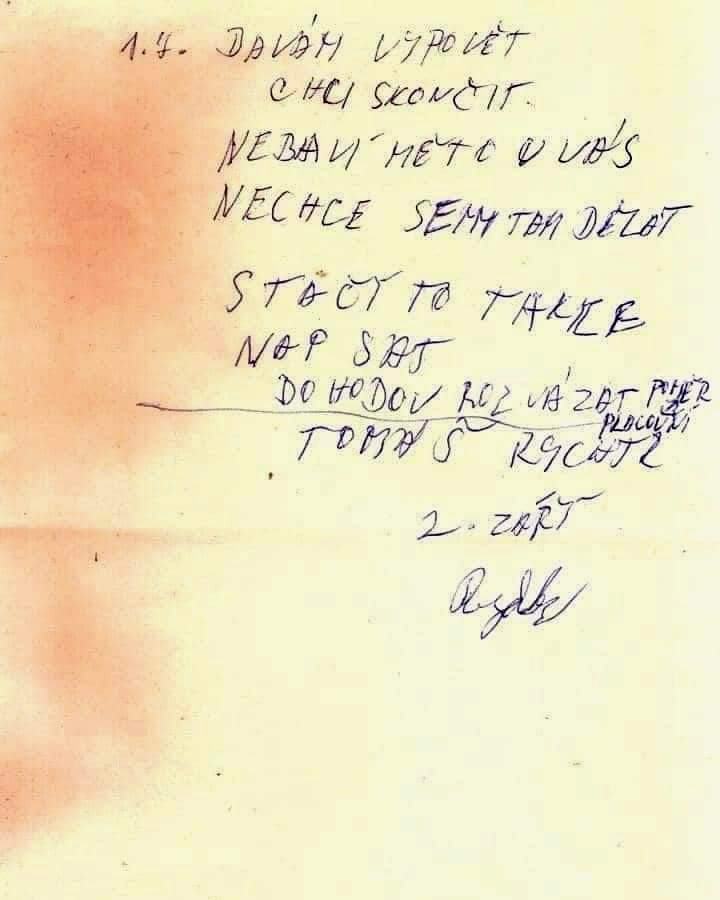 1.7. DAVÁM VYPOVĚT
CHCI SKONČIT.
NEBAVÍ MĚTO U VÁS
NECHCE SEMM TAM DĚLAT
STAČÍ TO TAKLE
NAP SAT
DOHODOV ROZVÁZAT POMĚR
PRACOVNÍ
TOMÁŠ RYCHTR
2. ZÁŘÍ